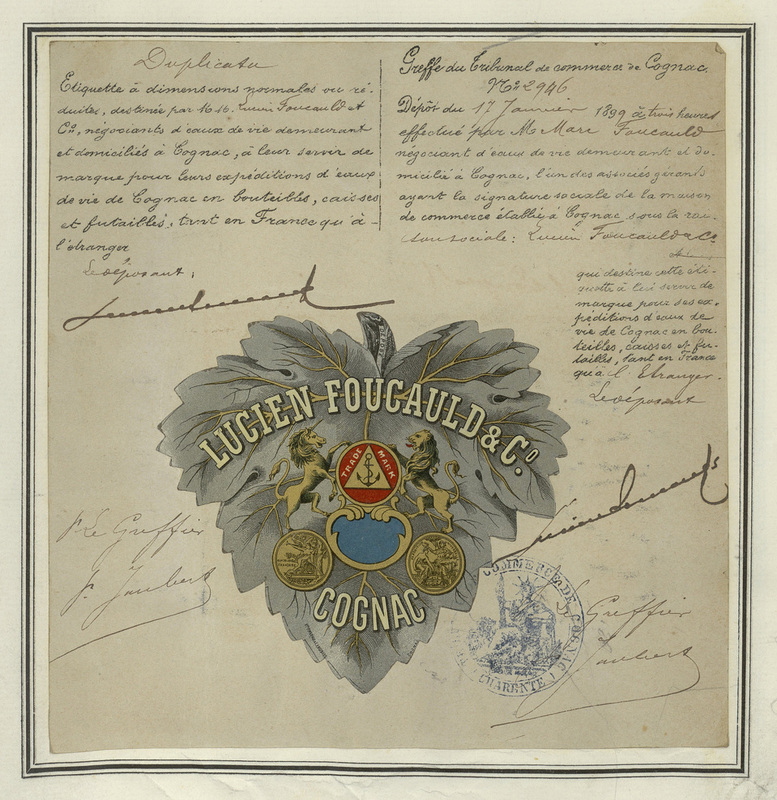 Duplicata
Etiquette à dimensions normales ou ré-
duites, destinée par M.M. Lucien Foucauld et
Cie, négociants d'eaux de vie demeurant
et domiciliés à Cognac, à leur servir de
marque pour leurs expéditions d'eaux
de vie de Cognac en bouteilles, caisses
et futailles, tant en France qu'à
l'étranger
Le déposant,
Greffe du Tribunal de commerce de Cognac.
No 2946
Dépôt du 17 Janvier 1899 à trois heures
effectué par M. Marc Foucauld
négociant d'eaux de vie demeurant et do-
micilié à Cognac, l'un des associés gérants
ayant la signature sociale de la maison
de commerce établie à Cognac, sous la rai-
son sociale: Lucien Foucauld & Co
qui destine cette éti-
quette à lui servir de
marque pour ses ex-
péditions d'eaux de
vie de Cognac en bou-
teilles, caisses et fu-
tailles, tant en France
qu'à l'Etranger.
Le déposant
LUCIEN FOUCAULD & Co
TRADE MARK
COGNAC
Pr Le Greffier
Jaubert
COMMERCE DE COGNAC
CHARENTE
Greffier
Jaubert